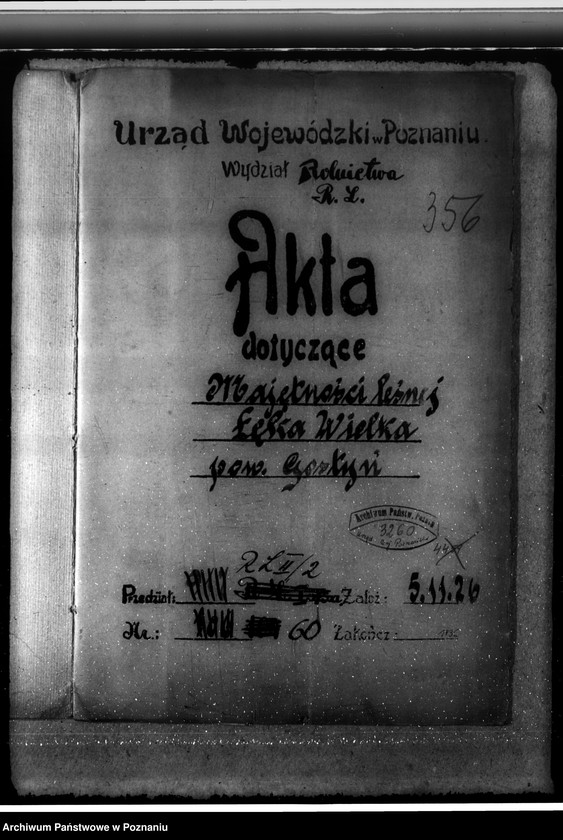 Urząd Wojewódzki w Poznaniu.
Wydział Rolnictwa
R. L.
356
Akta
dotyczące
Majętności leśnej
Łęka Wielka
pow. Gostyń
Archiwum Państw. Pozn.
3260
RL II/2
Przedział: Założ: 5.11.26
Nr.: 60 Zakończ:
Archiwum Państwowe w Poznaniu